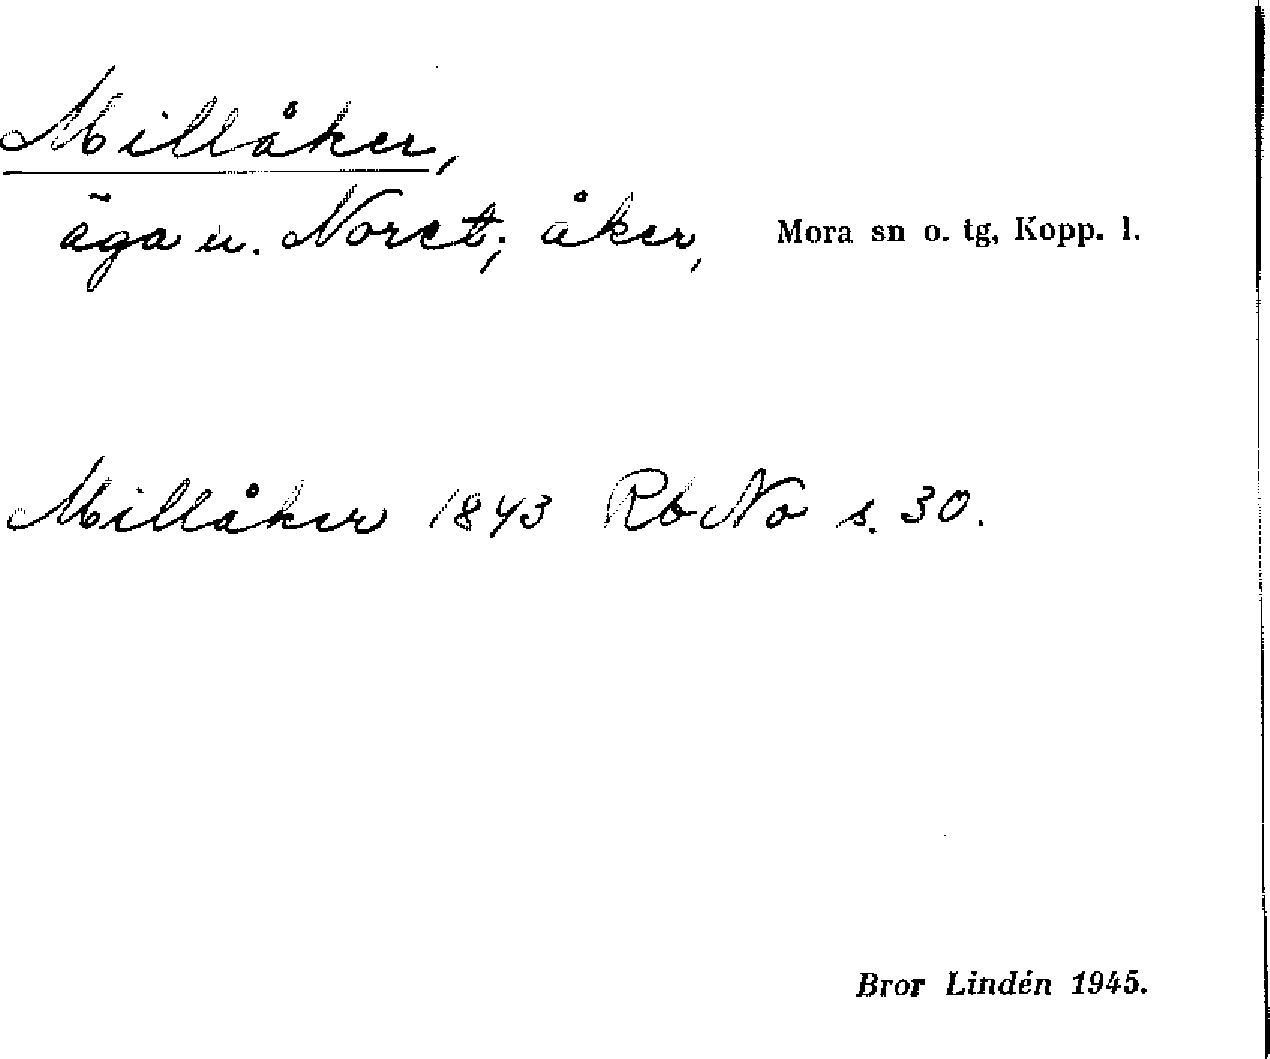 Millåker,
äga u. Noret; åker, Mora sn o. tg, Kopp. l.
Millåker 1843 Rb No s. 30.
Bror Lindén 1945.